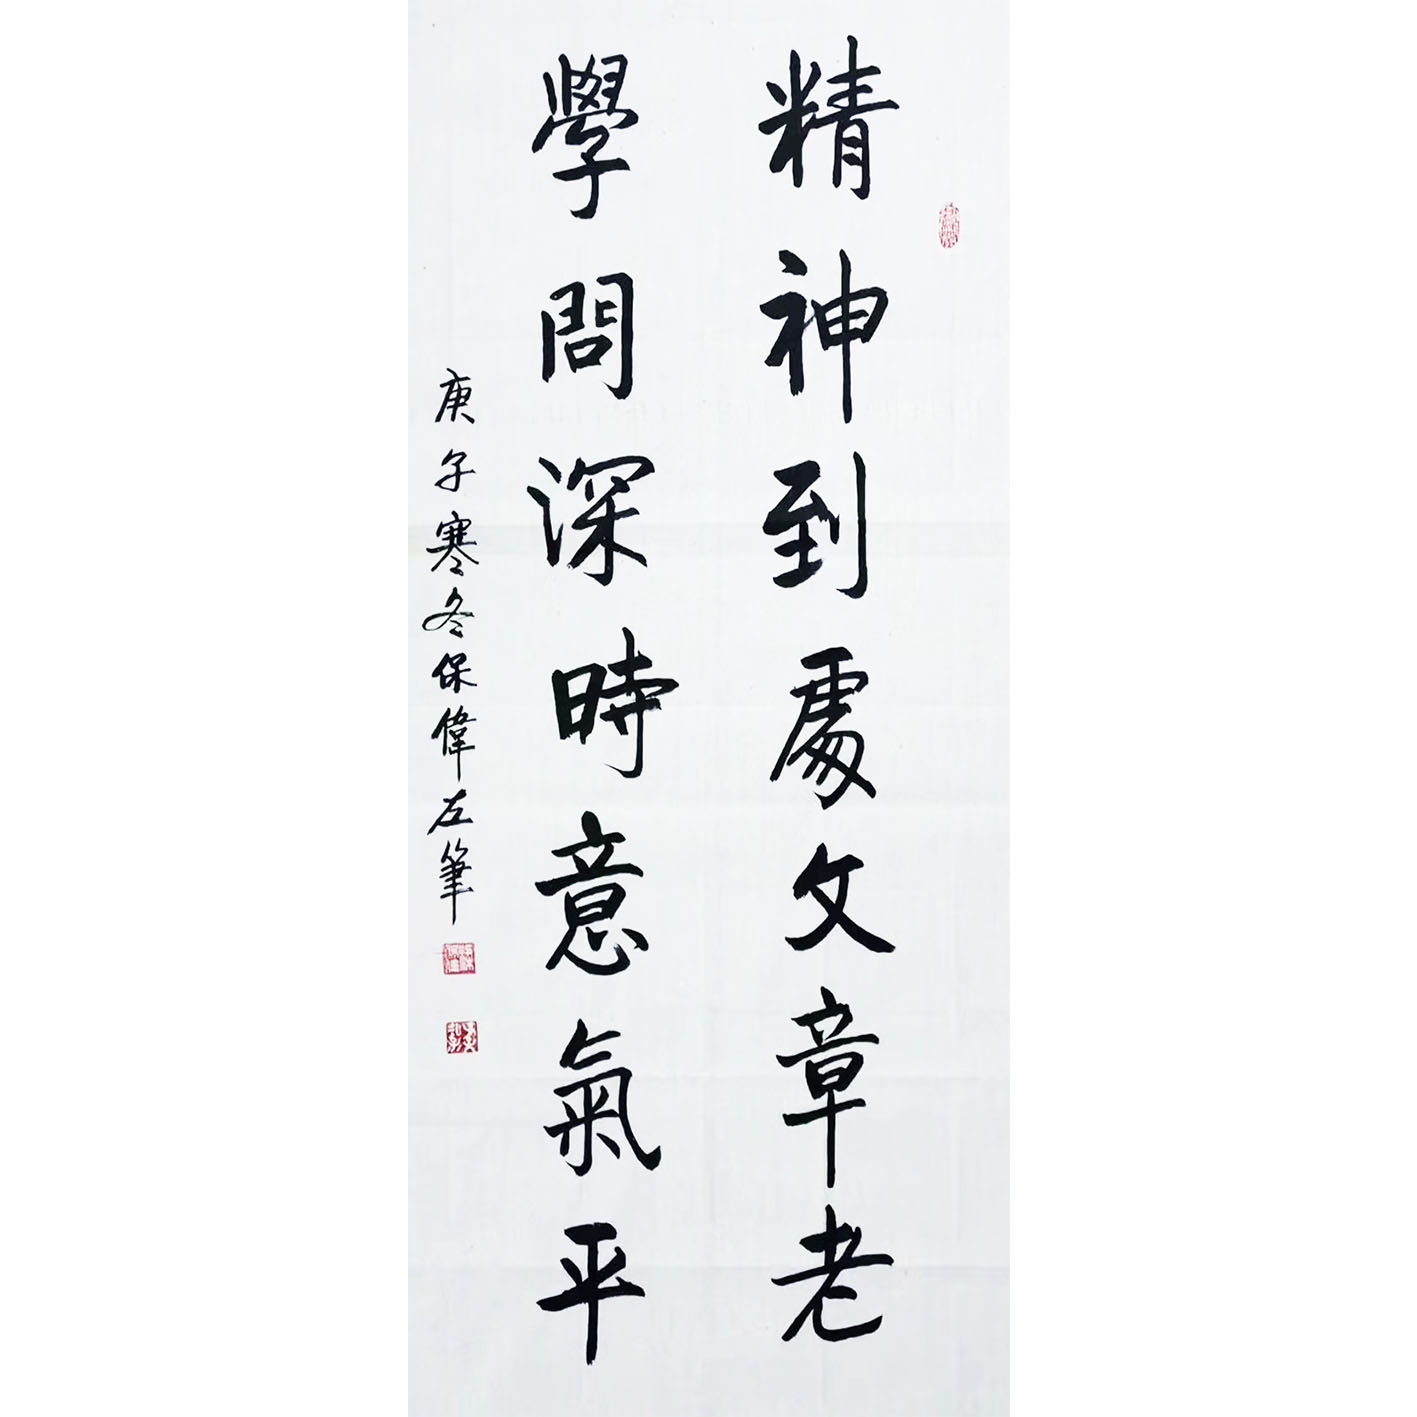 精神到處文章老
學問深時意氣平
庚子寒冬保偉左筆